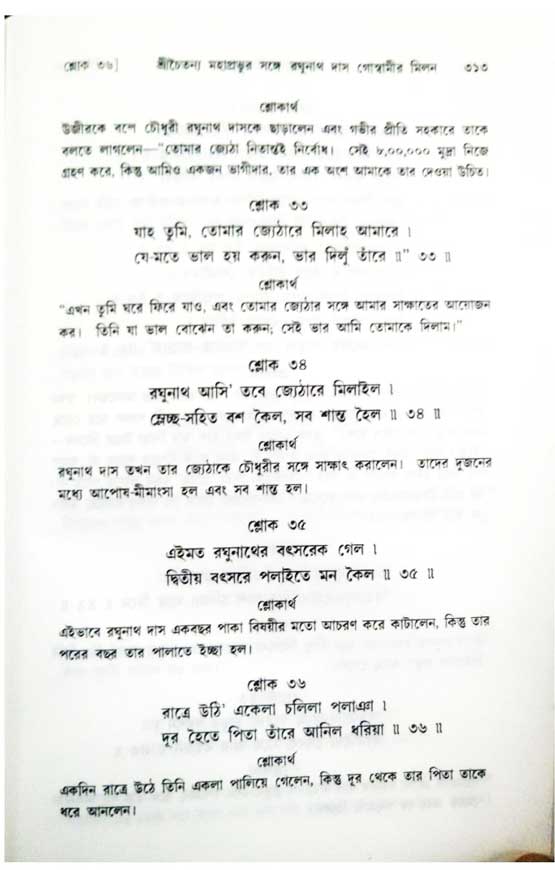 শ্লোক ৩৬] শ্রীচৈতন্য মহাপ্রভুর সঙ্গে রঘুনাথ দাস গোস্বামীর মিলন ৩১৩
শ্লোকার্থ
উজীরকে বলে চৌধুরী রঘুনাথ দাসকে ছাড়ালেন এবং গভীর প্রীতি সহকারে তাকে
বলতে লাগলেন—“তোমার জ্যেঠা নিতান্তই নির্বোধ। সেই ৮,০০,০০০ মুদ্রা নিজে
গ্রহণ করে, কিন্তু আমিও একজন ভাগীদার, তার এক অংশ আমাকে তার দেওয়া উচিত।
শ্লোক ৩৩
যাহ তুমি, তোমার জ্যেঠারে মিলাহ আমারে ।
যে-মতে ভাল হয় করুন, ভার দিলুঁ তাঁরে ॥” ৩৩ ॥
শ্লোকার্থ
“এখন তুমি ঘরে ফিরে যাও, এবং তোমার জ্যেঠার সঙ্গে আমার সাক্ষাতের আয়োজন
কর। তিনি যা ভাল বোঝেন তা করুন; সেই ভার আমি তোমাকে দিলাম।”
শ্লোক ৩৪
রঘুনাথ আসি’ তবে জ্যেঠারে মিলাইল ।
ম্লেচ্ছ-সহিত বশ কৈল, সব শান্ত হৈল ॥ ৩৪ ॥
শ্লোকার্থ
রঘুনাথ দাস তখন তার জ্যেঠাকে চৌধুরীর সঙ্গে সাক্ষাৎ করালেন। তাদের দুজনের
মধ্যে আপোষ-মীমাংসা হল এবং সব শান্ত হল।
শ্লোক ৩৫
এইমত রঘুনাথের বৎসরেক গেল ।
দ্বিতীয় বৎসরে পলাইতে মন কৈল ॥ ৩৫ ॥
শ্লোকার্থ
এইভাবে রঘুনাথ দাস একবছর পাকা বিষয়ীর মতো আচরণ করে কাটালেন, কিন্তু তার
পরের বছর তার পালাতে ইচ্ছা হল।
শ্লোক ৩৬
রাত্রে উঠি’ একেলা চলিলা পলাঞা ।
দূর হৈতে পিতা তাঁরে আনিল ধরিয়া ॥ ৩৬ ॥
শ্লোকার্থ
একদিন রাত্রে উঠে তিনি একলা পালিয়ে গেলেন, কিন্তু দূর থেকে তার পিতা তাকে
ধরে আনলেন।